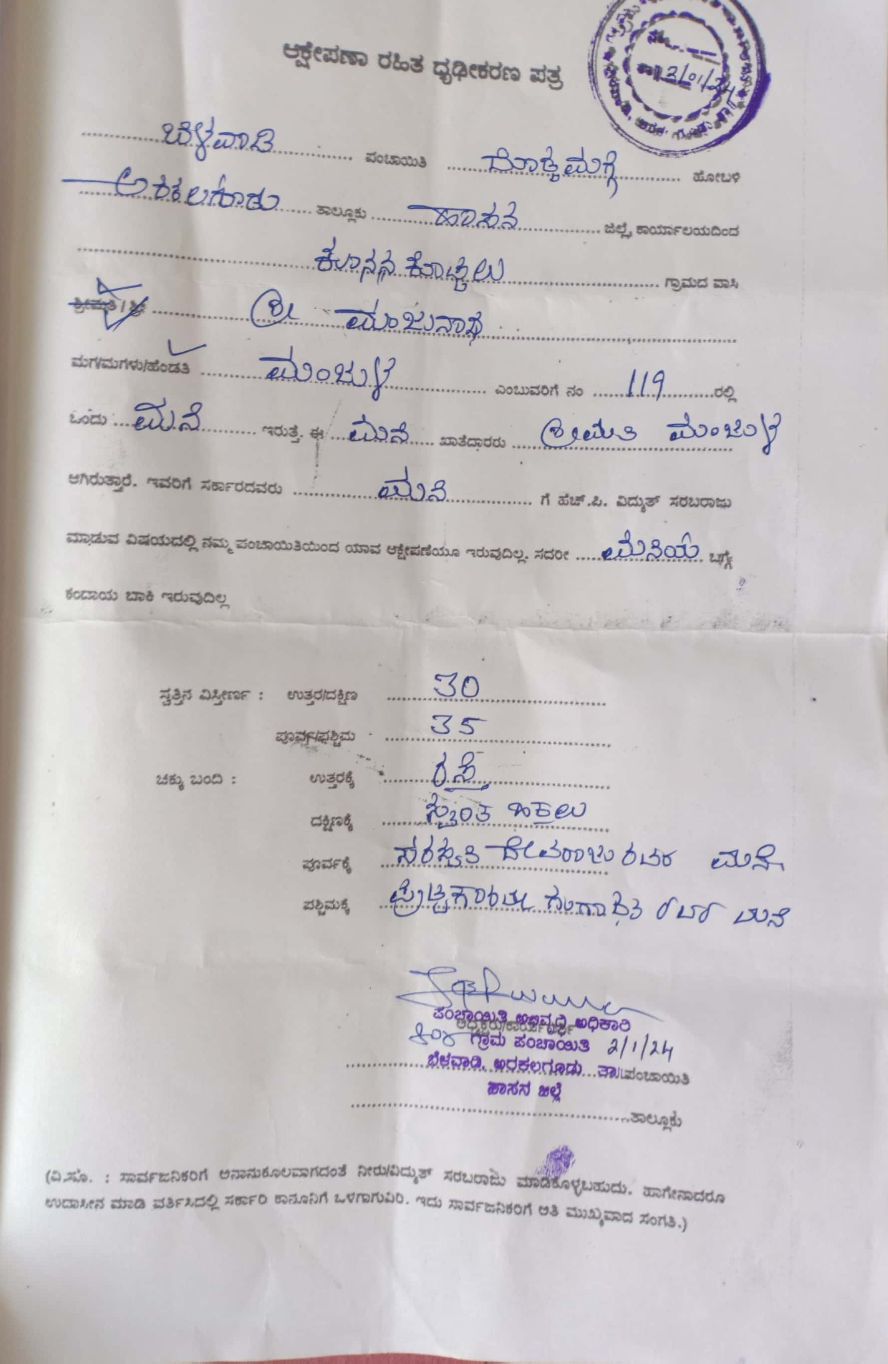 ಆಕ್ಷೇಪಣಾ ರಹಿತ ಧೃಢೀಕರಣ ಪತ್ರ
2/01/24
ಬೆಳವಾಡಿ ಪಂಚಾಯಿತಿ ದೊಡ್ಡಮಗ್ಗೆ ಹೋಬಳಿ
ಅರಕಲಗೂಡು ತಾಲ್ಲೂಕು ಹಾಸನ ಜಿಲ್ಲೆ, ಕಾರ್ಯಾಲಯದಿಂದ
ಗ್ರಾಮದ ವಾಸಿ
ಶ್ರೀಮತಿ / ಶ್ರೀ ಶ್ರೀ ಮಂಜುನಾಥ
ಮಗ/ಮಗಳು/ಹೆಂಡತಿ ಮಂಜುಳ ಎಂಬುವರಿಗೆ ನಂ 119 ರಲ್ಲಿ
ಒಂದು ಮನೆ ಇರುತ್ತೆ. ಈ ಮನೆ ಖಾತೆದಾರರು ಶ್ರೀಮತಿ ಮಂಜುಳ
ಆಗಿರುತ್ತಾರೆ. ಇವರಿಗೆ ಸರ್ಕಾರದವರು ಮನೆ ಗೆ ಹೆಚ್.ಪಿ. ವಿದ್ಯುತ್ ಸರಬರಾಜು
ಮಾಡುವ ವಿಷಯದಲ್ಲಿ ನಮ್ಮ ಪಂಚಾಯಿತಿಯಿಂದ ಯಾವ ಆಕ್ಷೇಪಣೆಯೂ ಇರುವುದಿಲ್ಲ. ಸದರೀ ಮನೆಯ ಬಗ್ಗೆ
ಕಂದಾಯ ಬಾಕಿ ಇರುವುದಿಲ್ಲ
ಸ್ವತ್ತಿನ ವಿಸ್ತೀರ್ಣ : ಉತ್ತರ/ದಕ್ಷಿಣ 30
ಪೂರ್ವ/ಪಶ್ಚಿಮ 35
ಚಕ್ಕು ಬಂದಿ : ಉತ್ತರಕ್ಕೆ ರಸ್ತೆ
ದಕ್ಷಿಣಕ್ಕೆ ಸ್ವಂತ ಹಿತ್ತಲು
ಪೂರ್ವಕ್ಕೆ ಸರಸ್ವತಿ ದೇವರಾಜು ರವರ ಮನೆ
ಪಶ್ಚಿಮಕ್ಕೆ ಮನೆ
ಪಂಚಾಯಿತಿ ಅಭಿವೃದ್ಧಿ ಅಧಿಕಾರಿ
ಅಧ್ಯಕ್ಷರು/ಕಾರ್ಯದರ್ಶಿ
ಗ್ರಾಮ ಪಂಚಾಯಿತಿ 2/1/24
ಬೆಳವಾಡಿ, ಅರಕಲಗೂಡು ತಾ|| ಪಂಚಾಯಿತಿ
ಹಾಸನ ಜಿಲ್ಲೆ
ತಾಲ್ಲೂಕು
(ವಿ.ಸೂ. : ಸಾರ್ವಜನಿಕರಿಗೆ ಅನಾನುಕೂಲವಾಗದಂತೆ ನೀರು/ವಿದ್ಯುತ್ ಸರಬರಾಜು ಮಾಡಿಕೊಳ್ಳಬಹುದು. ಹಾಗೇನಾದರೂ
ಉದಾಸೀನ ಮಾಡಿ ವರ್ತಿಸಿದಲ್ಲಿ ಸರ್ಕಾರಿ ಕಾನೂನಿಗೆ ಒಳಗಾಗುವಿರಿ. ಇದು ಸಾರ್ವಜನಿಕರಿಗೆ ಅತಿ ಮುಖ್ಯವಾದ ಸಂಗತಿ.)